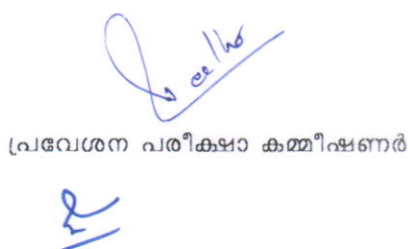 പ്രവേശന പരീക്ഷാ കമ്മീഷണർ